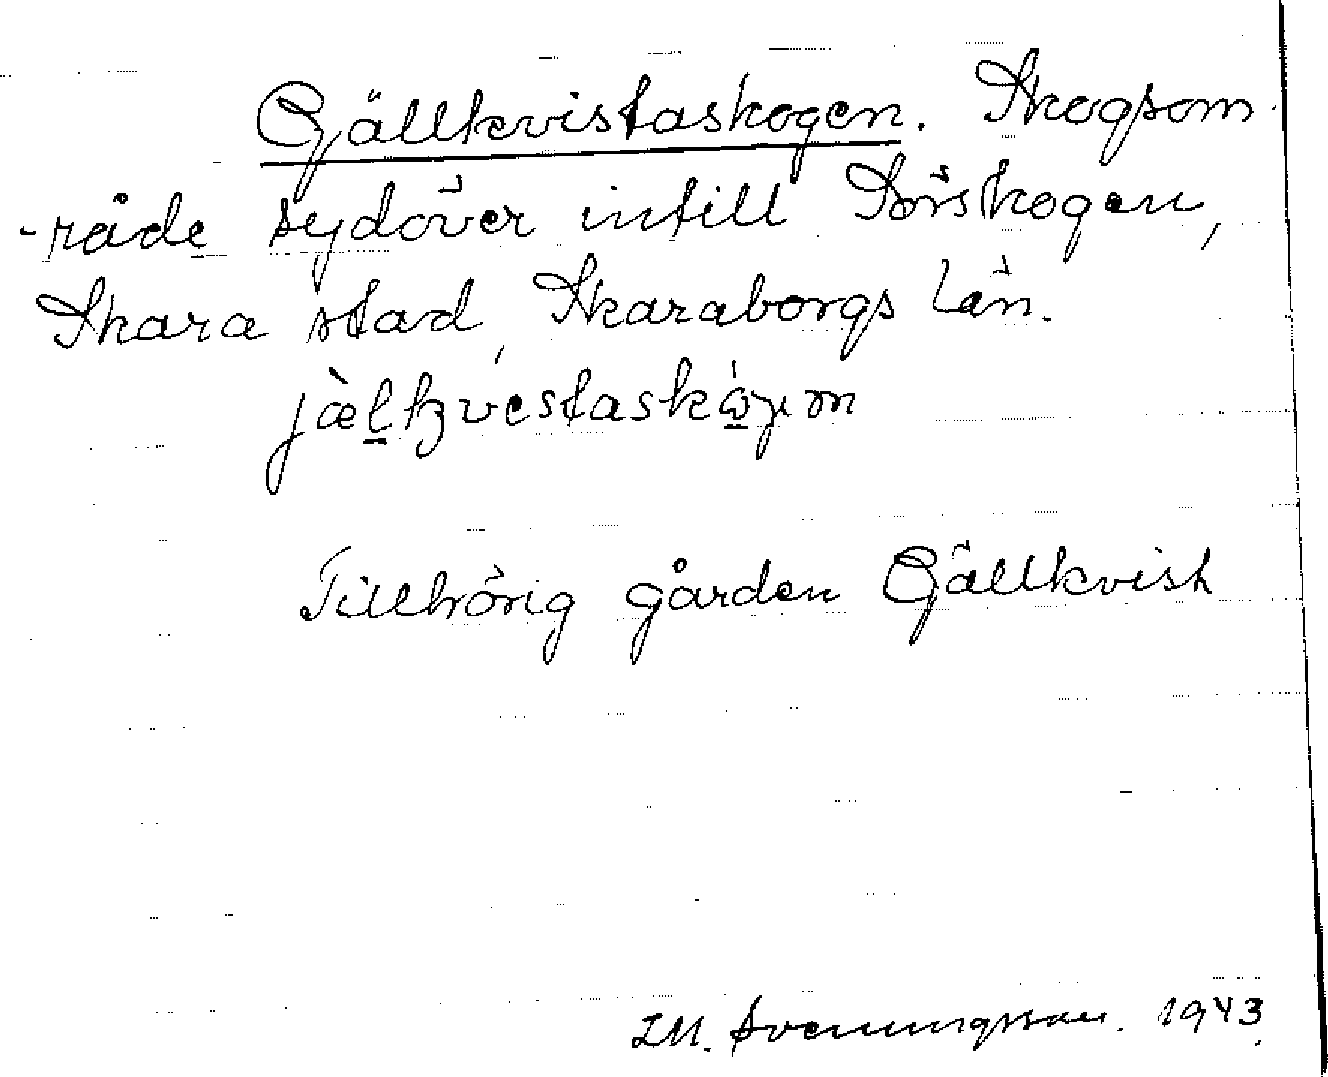 Gällkvistaskogen. Skogsom-
-råde sydöver intill Sörskogen,
Skara stad, Skaraborgs län.
Tillhörig gården Gällkvist
LM. Svenungsson. 1943.